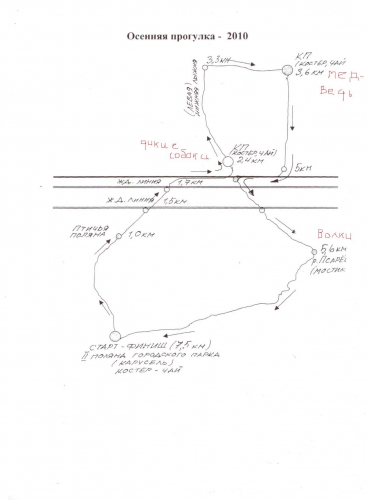 Осенняя прогулка - 2010
3,3 КМ
КП
(КОСТЕР, ЧАЙ
3,6 КМ
МЕД-
ВЕДЬ
(ЛЕВАЯ)
НИЖНЯЯ ЛЫЖНЯ
ДИКИЕ
СОБАКИ
КП
(КОСТЕР, ЧАЙ)
2,4 КМ
5 КМ
Ж.Д. ЛИНИЯ 1,7 КМ
Ж.Д. ЛИНИЯ 1,5 КМ
ПТИЧЬЯ
ПОЛЯНА
1,0 КМ
ВОЛКИ
5,6 КМ
р. ПСАРЁ
(МОСТИК
СТАРТ - ФИНИШ (7,5 КМ)
II ПОЛЯНА ГОРОДСКОГО ПАРКА
(КАРУСЕЛЬ)
КОСТЕР - ЧАЙ